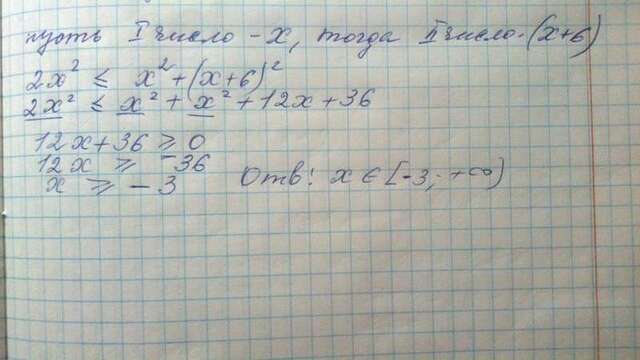 пусть I число - x, тогда II число - (x+6)
2x² ≤ x² + (x+6)²
2x² ≤ x² + x² + 12x + 36
12x + 36 ≥ 0
12x ≥ -36
x ≥ -3 Отв: x ∈ [-3; +∞)